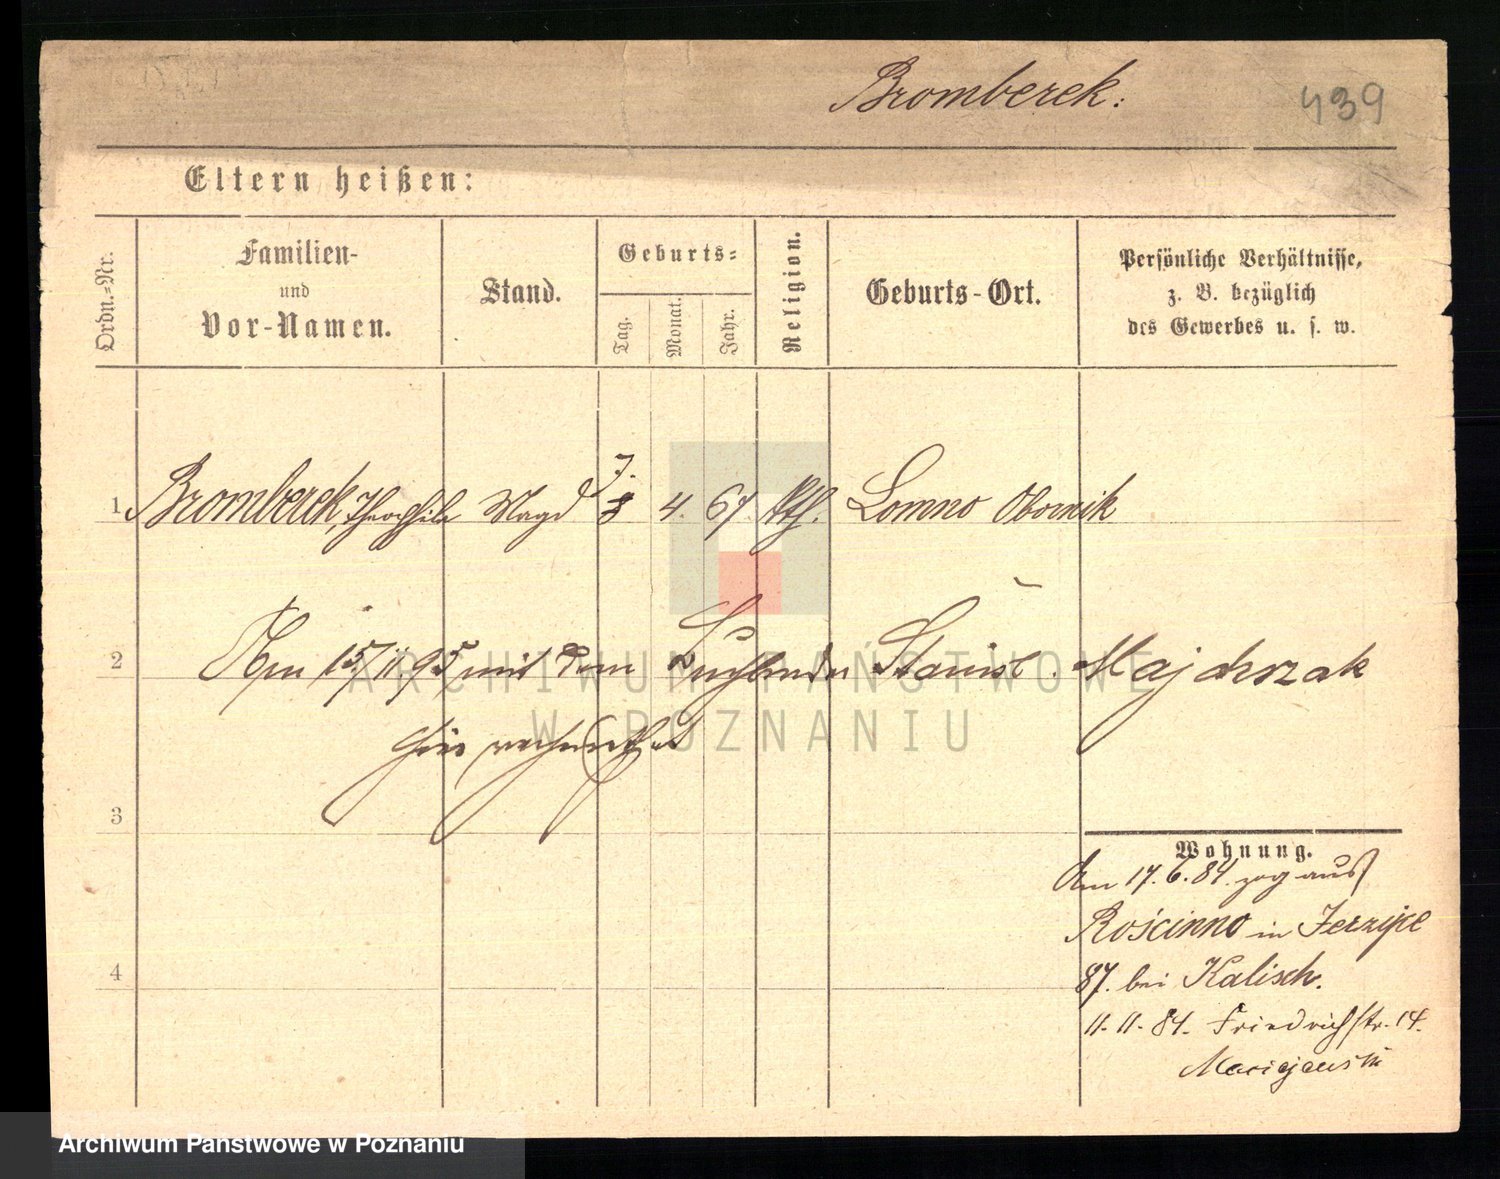 Bromberek: 439
Eltern heißen:
Ordn.=Nr.
Familien-
und
Vor-Namen.
Stand.
Geburts=
Tag.
Monat.
Jahr.
Religion.
Geburts-Ort.
Persönliche Verhältnisse,
z. B. bezüglich
des Gewerbes u. s. w.
7.
1 Bromberek Theophila Magd 8 4. 67. kth. Lomno Obornik
2 Am 15/11. 95 mit dem Stanisl. Majchrzak
hier verheirathet
3
Wohnung.
Am 17. 6. 87. zog aus
Rościnno in Jerzyce
4
87. bei Kalisch.
11. 11. 87. Friedrichstr. 14.
Maciejewski
ARCHIWUM PAŃSTWOWE
W POZNANIU
Archiwum Państwowe w Poznaniu